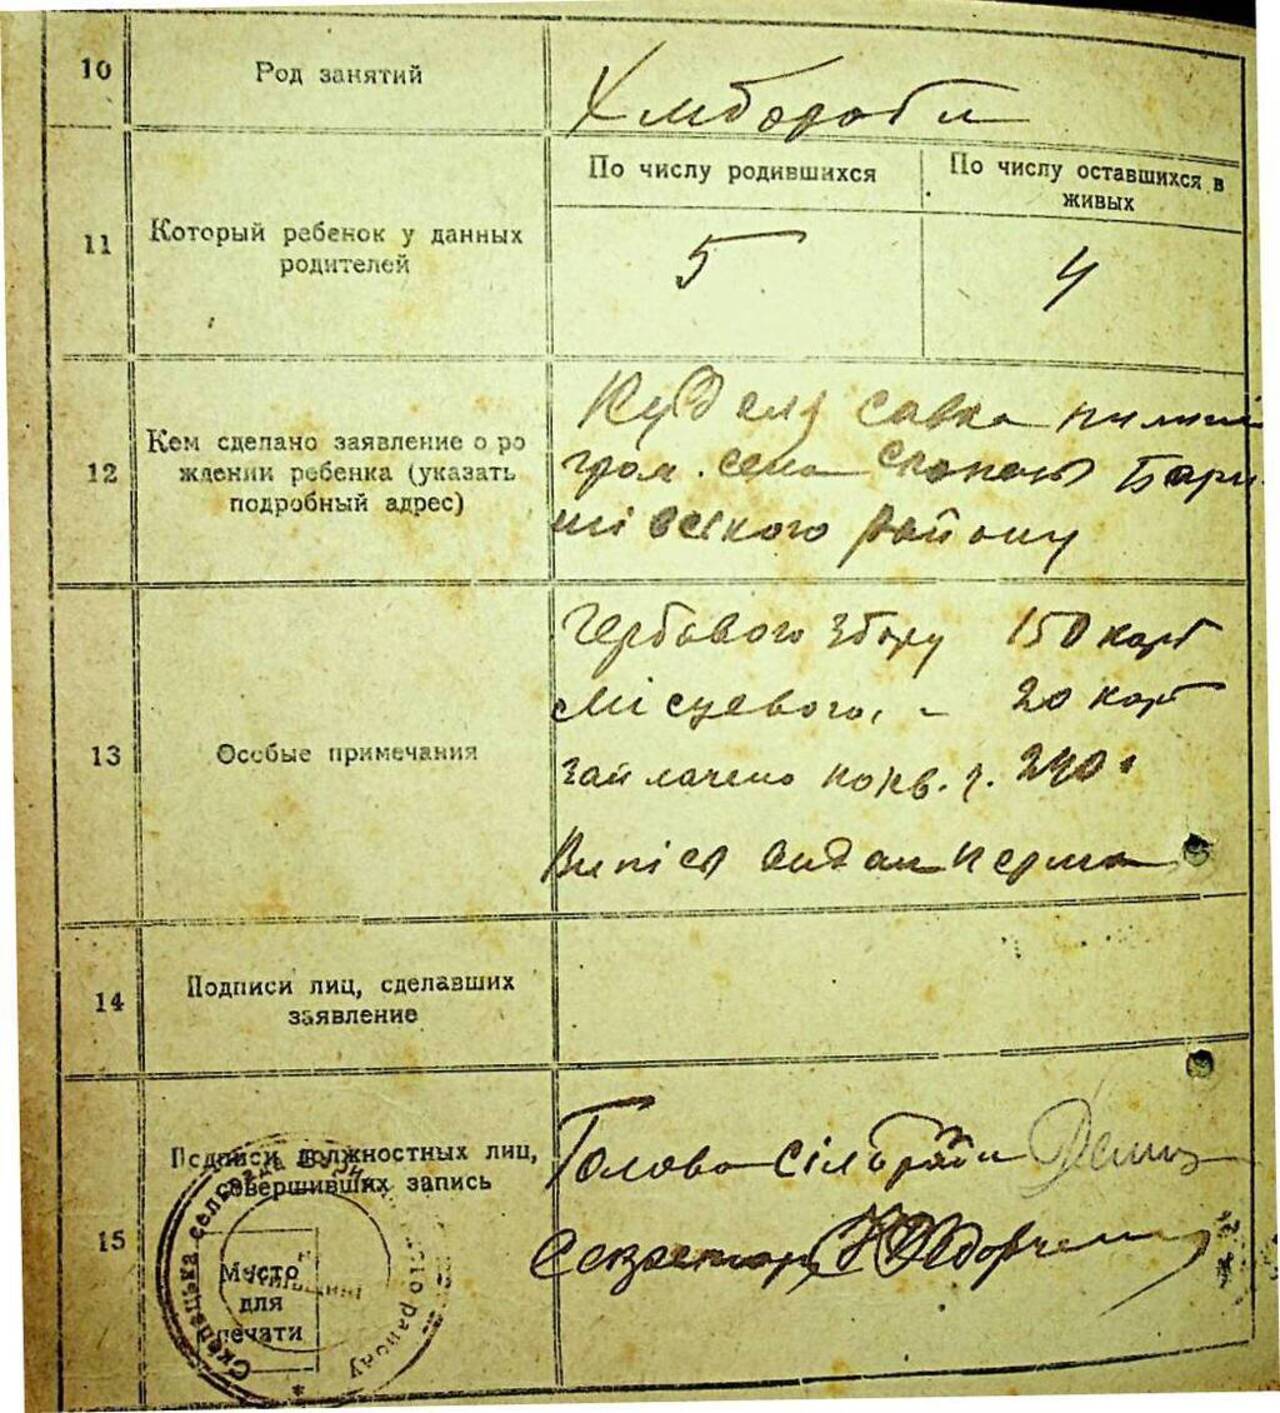 10
Род занятий
Хлібороби
11
Который ребенок у данных
родителей
По числу родившихся
По числу оставшихся в
живых
5
4
12
Кем сделано заявление о ро
ждении ребенка (указать
подробный адрес)
Савка
гром. села Скопець Бари
шівського району
13
Особые примечания
Гербового збору 150 карб
Місцевого, - 20 карб
240
Випись видан перша
14
Подписи лиц, сделавших
заявление
15
Подписи должностных лиц,
совершивших запись
Голова сільради
Секретар
Место
для
печати
Скопецька сельрада
району